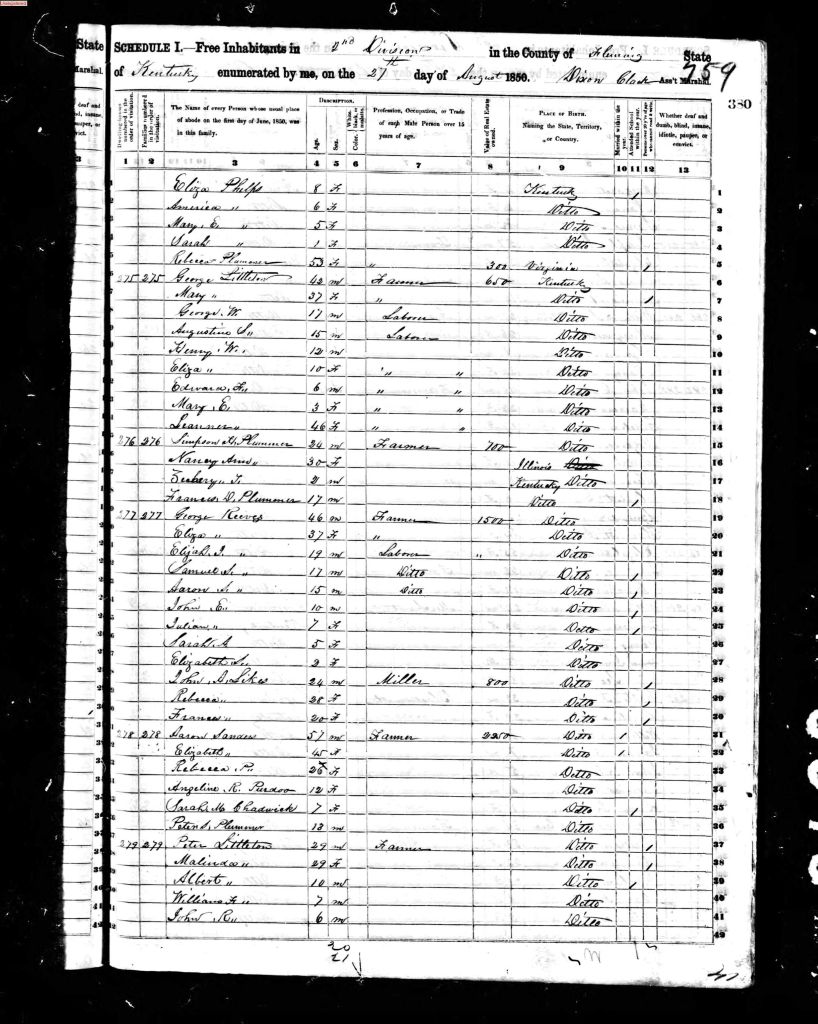 State
Marshal.
SCHEDULE I.—Free Inhabitants in 2nd Division in the County of Fleming State
of Kentucky enumerated by me, on the 27th day of August 1850. Dixon Clack Ass't Marshal.
759
380
Dwelling-houses numbered in the order of visitation.
Families numbered in the order of visitation.
The Name of every Person whose usual place of abode on the first day of June, 1850, was in this family.
DESCRIPTION.
Age.
Sex.
Color.
Profession, Occupation, or Trade of each Male Person over 15 years of age.
Value of Real Estate owned.
PLACE OF BIRTH. Naming the State, Territory, or Country.
Married within the year.
Attended School within the year.
Whether deaf and dumb, blind, insane, idiotic, pauper, or convict.
1 2 3 4 5 6 7 8 9 10 11 12 13
Eliza Phelps 8 F Kentucky / 1
America " 6 F Ditto 2
Mary, E. " 5 F Ditto 3
Sarah " 1 F Ditto 4
Rebecca Plummer 53 F " 300 Virginia / 5
275 275 George Littleton 42 m Farmer 650 Kentucky 6
Mary " 37 F " Ditto / 7
George, W. 17 m Laborer Ditto 8
Augustine S " 15 m Laborer Ditto 9
Henry, W. " 12 m Ditto 10
Eliza " 10 F " " Ditto 11
Edward, F " 6 m " " Ditto 12
Mary, E. 3 F " " Ditto 13
Leanner " 46 F " " Ditto 14
276 276 Simpson H. Plummer 24 m Farmer 700 Ditto 15
Nancy Ann " 30 F Illinois 16
2 m Kentucky Ditto 17
Francis D. Plummer 17 m Ditto / 18
277 277 George Reeves 46 m Farmer 1500 Ditto 19
Eliza " 37 F " Ditto 20
Elijah I. " 19 m Laborer " Ditto 21
Samuel S. " 17 m Ditto Ditto / 22
Aaron S. " 15 m Ditto Ditto / 23
John E. 10 m Ditto / 24
Julian " 7 F Ditto / 25
Sarah A 5 F Ditto 26
Elizabeth S " 2 F Ditto 27
John A. Sikes 24 m Miller 800 Ditto / 28
Rebecca " 28 F Ditto / 29
Frances " 20 F Ditto / 30
278 278 Aaron Sanders 57 m Farmer 2250 Ditto / 31
Elizabeth " 45 F Ditto / 32
Rebecca P " 26 F Ditto 33
Angeline R. Purdoo 12 F Ditto 34
Sarah M Chadwick 7 F Ditto / 35
Peter S. Plummer 13 m Ditto 36
279 279 Peter Littleton 29 m Farmer Ditto / 37
Malinda " 29 F Ditto / 38
Albert " 10 m Ditto / 39
William F " 7 m Ditto 40
John R " 6 m Ditto 41
42
20
21